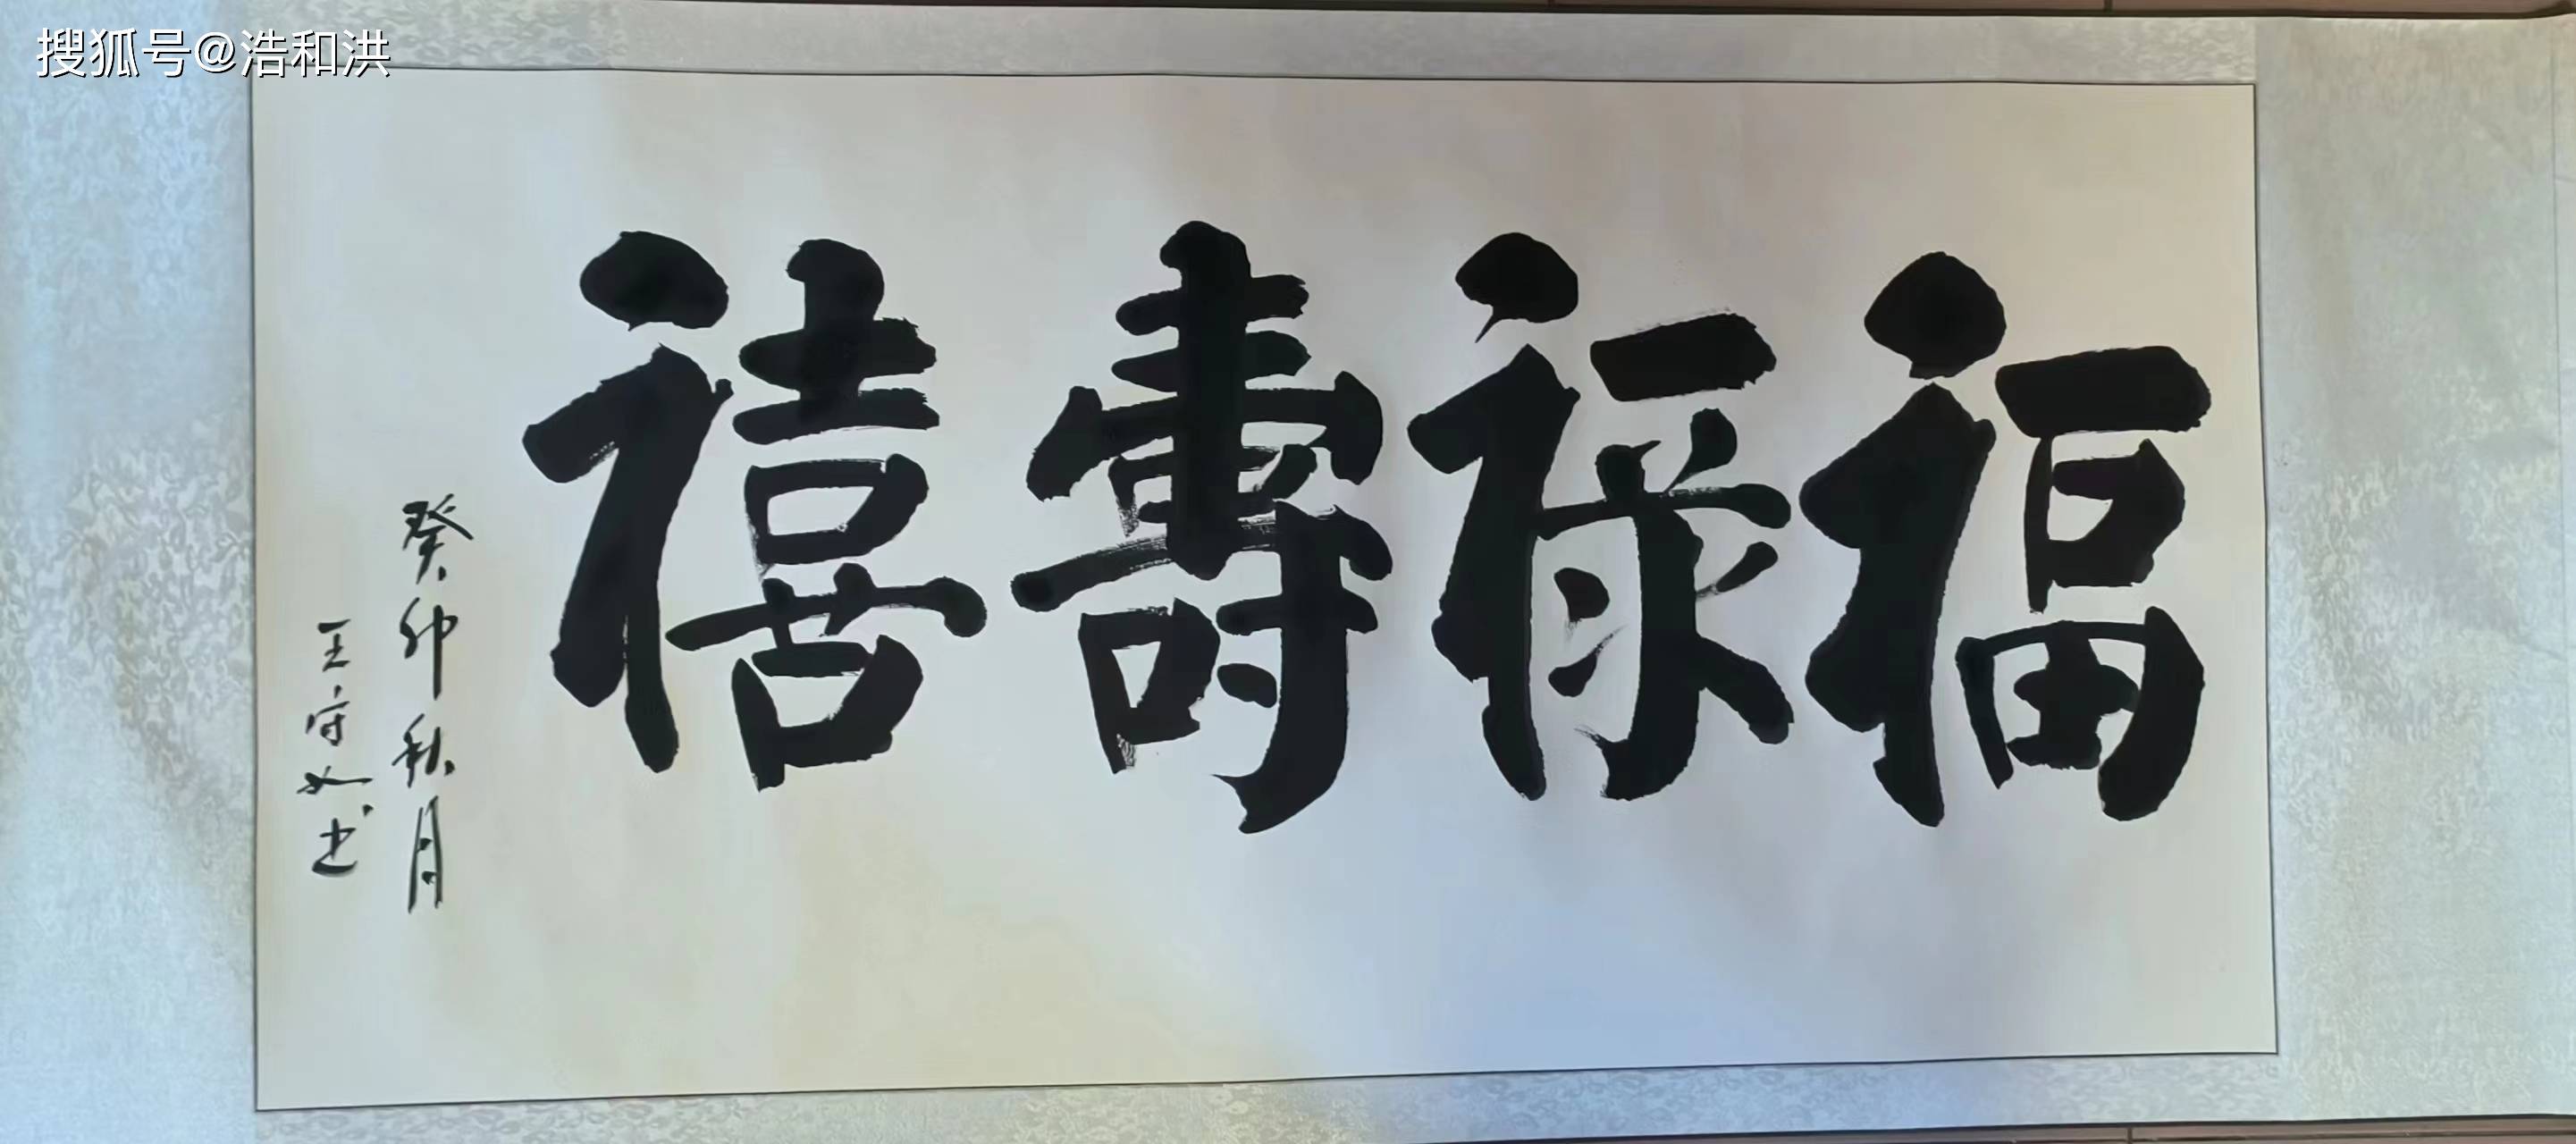 搜狐号@浩和洪
福禄壽禧
癸卯秋月
王守如书